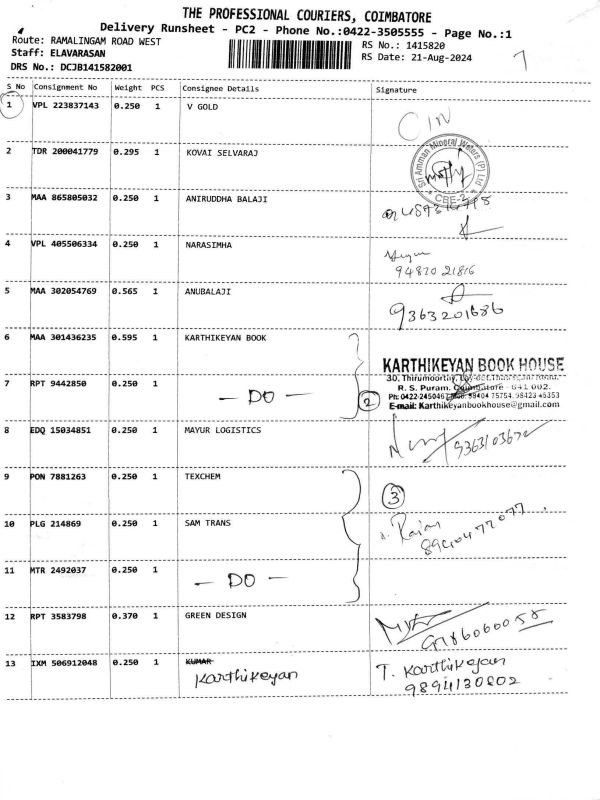 THE PROFESSIONAL COURIERS, COIMBATORE
Delivery Runsheet - PC2 - Phone No.:0422-3505555 - Page No.:1
Route: RAMALINGAM ROAD WEST
RS No.: 1415820
Staff: ELAVARASAN
RS Date: 21-Aug-2024
DRS No.: DCJB141582001
S No Consignment No Weight PCS Consignee Details Signature
1 VPL 223837143 0.250 1 V GOLD
2 TDR 200041779 0.295 1 KOVAI SELVARAJ
Sri Amman Mineral Waters (P) Ltd
CBE-2
3 MAA 865805032 0.250 1 ANIRUDDHA BALAJI
4 VPL 405506334 0.250 1 NARASIMHA
94870 21816
5 MAA 302054769 0.565 1 ANUBALAJI
9363201686
6 MAA 301436235 0.595 1 KARTHIKEYAN BOOK
KARTHIKEYAN BOOK HOUSE
30, Thirumoorthy
R. S. Puram, Coimbatore - 641 002.
7 RPT 9442850 0.250 1 - DO - 2
98404 75754, 98423 45353
E-mail: Karthikeyanbookhouse@gmail.com
8 EDQ 15034851 0.250 1 MAYUR LOGISTICS
9363103672
9 PON 7881263 0.250 1 TEXCHEM
3
10 PLG 214869 0.250 1 SAM TRANS
Rajan
11 MTR 2492037 0.250 1 - DO -
12 RPT 3583798 0.370 1 GREEN DESIGN
13 IXM 506912048 0.250 1 KUMAR
Karthikeyan
T. Karthikeyan
9894130802